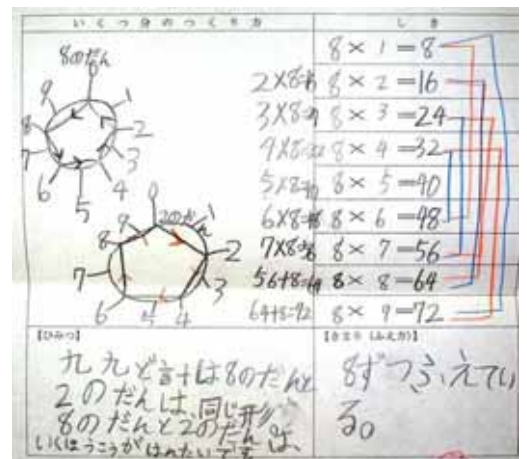 いくつ分のつくり方
しき
8のだん
0
1
2
3
4
5
6
7
8
9
2のだん
0
1
2
3
4
5
6
7
8
9
8×1=8
2×8=16 8×2=16
3×8=24 8×3=24
4×8=32 8×4=32
5×8=40 8×5=40
6×8=48 8×6=48
7×8=56 8×7=56
56+8=64 8×8=64
64+8=72 8×9=72
【ひみつ】
九九ど計は8のだんと
2のだんは、同じ形
8のだんと2のだんは、
いくほうこうがはんたいです
【きまり(ふえ方)】
8ずつふえてい
る。